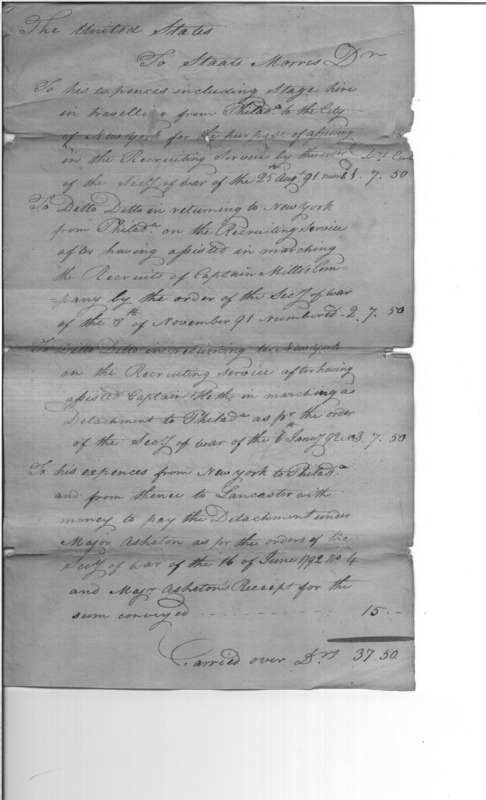 The United States
To Staats Morris Dr
To his expences including Stage hire
in travelling from Philada to the City
of New York for the purpose of assisting
in the Recruiting Service by the order Drs Cts
of the Secy of War of the 25th Augt 91 numd 1. 7. 50
To Ditto Ditto in returning to New York
from Philada on the Recruiting Service
after having assisted in marching
the Recruits of Captain Mills's Com
=pany by the order of the Secy of War
of the 8th of November 91 Numbered 2. 7. 50
To Ditto Ditto in returning to New York
on the Recruiting Service after having
assisted Captain Heth in marching a
Detachment to Philada as pr the order
of the Secy of War of the 6th Jany 92 no 3. 7. 50
To his expences from New York to Philada
and from thence to Lancaster with
money to pay the Detachment under
Major Asheton as pr the orders of the
Secy of War of the 16 of June 1792 no 4
and Majr Asheton's Receipt for the
sum conveyed 15 . --
Carried over Drs 37 50